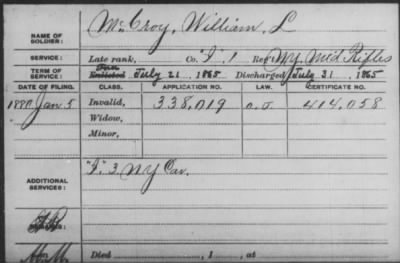 NAME OF SOLDIER: McCroy, William L
SERVICE: Late rank, Co. I 1 Reg't Ny. Mtd Rifles
TERM OF SERVICE: Enlisted July 21, 1865 Discharged July 31, 1865
DATE OF FILING. CLASS. APPLICATION NO. LAW. CERTIFICATE NO.
1880 Jan. 5 Invalid, 338,019 414,058
Widow,
Minor,
ADDITIONAL SERVICES: "I" 3 NY Cav.
Died , 1 , at